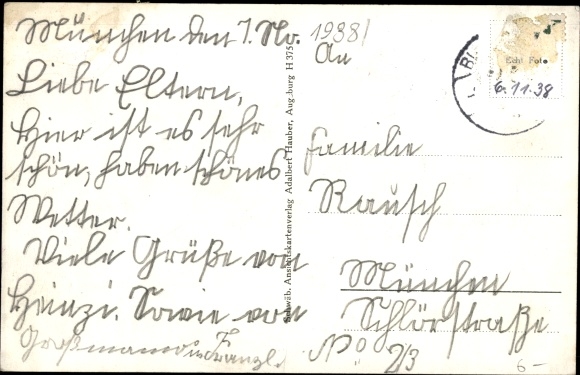 München den 7. Nov. 1938!
Liebe Eltern,
Hier ist es sehr
schön, haben schönes
Wetter.
Viele Grüße von
Heinzi. Sowie von
Großmama u. Franzl.
Schwäb. Ansichtskartenverlag Adalbert Hauber, Augsburg H 375
An
Familie
Rausch
München
Schlörstraße
No 2/3
Echt Foto
6.11.38
6-